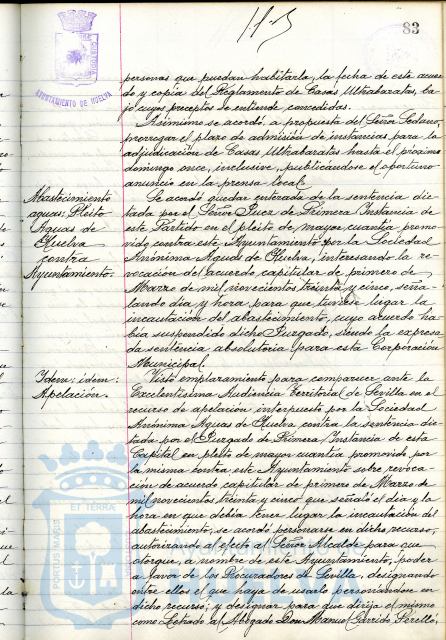 83
AYUNTAMIENTO DE HUELVA
personas que puedan habitarla, la fecha de este acuer-
do y copia del Reglamento de Casas Ultrabaratas, ba-
jo cuyos preceptos se entiende concedidas.
Asimismo se acordó, a propuesta del Señor Sedano,
prorrogar el plazo de admisión de instancias para la
adjudicación de Casas Ultrabaratas hasta el próximo
domingo once, inclusive, publicándose el oportuno
anuncio en la prensa local.
Abastecimiento
aguas: Pleito
Aguas de
Huelva
contra
Ayuntamiento.
Se acordó quedar enterada de la sentencia dic-
tada por el Señor Juez de Primera Instancia de
este Partido en el pleito de mayor cuantía promo-
vido contra este Ayuntamiento por la Sociedad
Anónima Aguas de Huelva, interesando la re-
vocación del acuerdo capitular de primero de
Marzo de mil novecientos treinta y cinco, seña-
lando día y hora, para que tuviese lugar la
incautación del abastecimiento, cuyo acuerdo ha-
bía suspendido dicho Juzgado, siendo la expresa-
da sentencia absolutoria para esta Corporación
Municipal.
Idem: idem:
Apelación.
Visto emplazamiento para comparecer ante la
Excelentísima Audiencia Territorial de Sevilla en el
recurso de apelación interpuesto por la Sociedad
Anónima Aguas de Huelva contra la sentencia dic-
tada por el Juzgado de Primera Instancia de esta
Capital en pleito de mayor cuantía promovido por
la misma contra este Ayuntamiento sobre revoca-
ción de acuerdo capitular de primero de Marzo de
mil novecientos treinta y cinco que señaló el día y la
hora en que debía tener lugar la incautación del
abastecimiento, se acordó personarse en dicho recurso,
autorizando al efecto al Señor Alcalde para que
otorgue, a nombre de este Ayuntamiento, poder
a favor de los Procuradores de Sevilla, designando
entre ellos el que haya de usarlo personándose en
dicho recurso; y designar para que dirija el mismo
como Letrado al Abogado Don Manuel Garrido Perelló,
PORTUS MARIS
ET TERRÆ